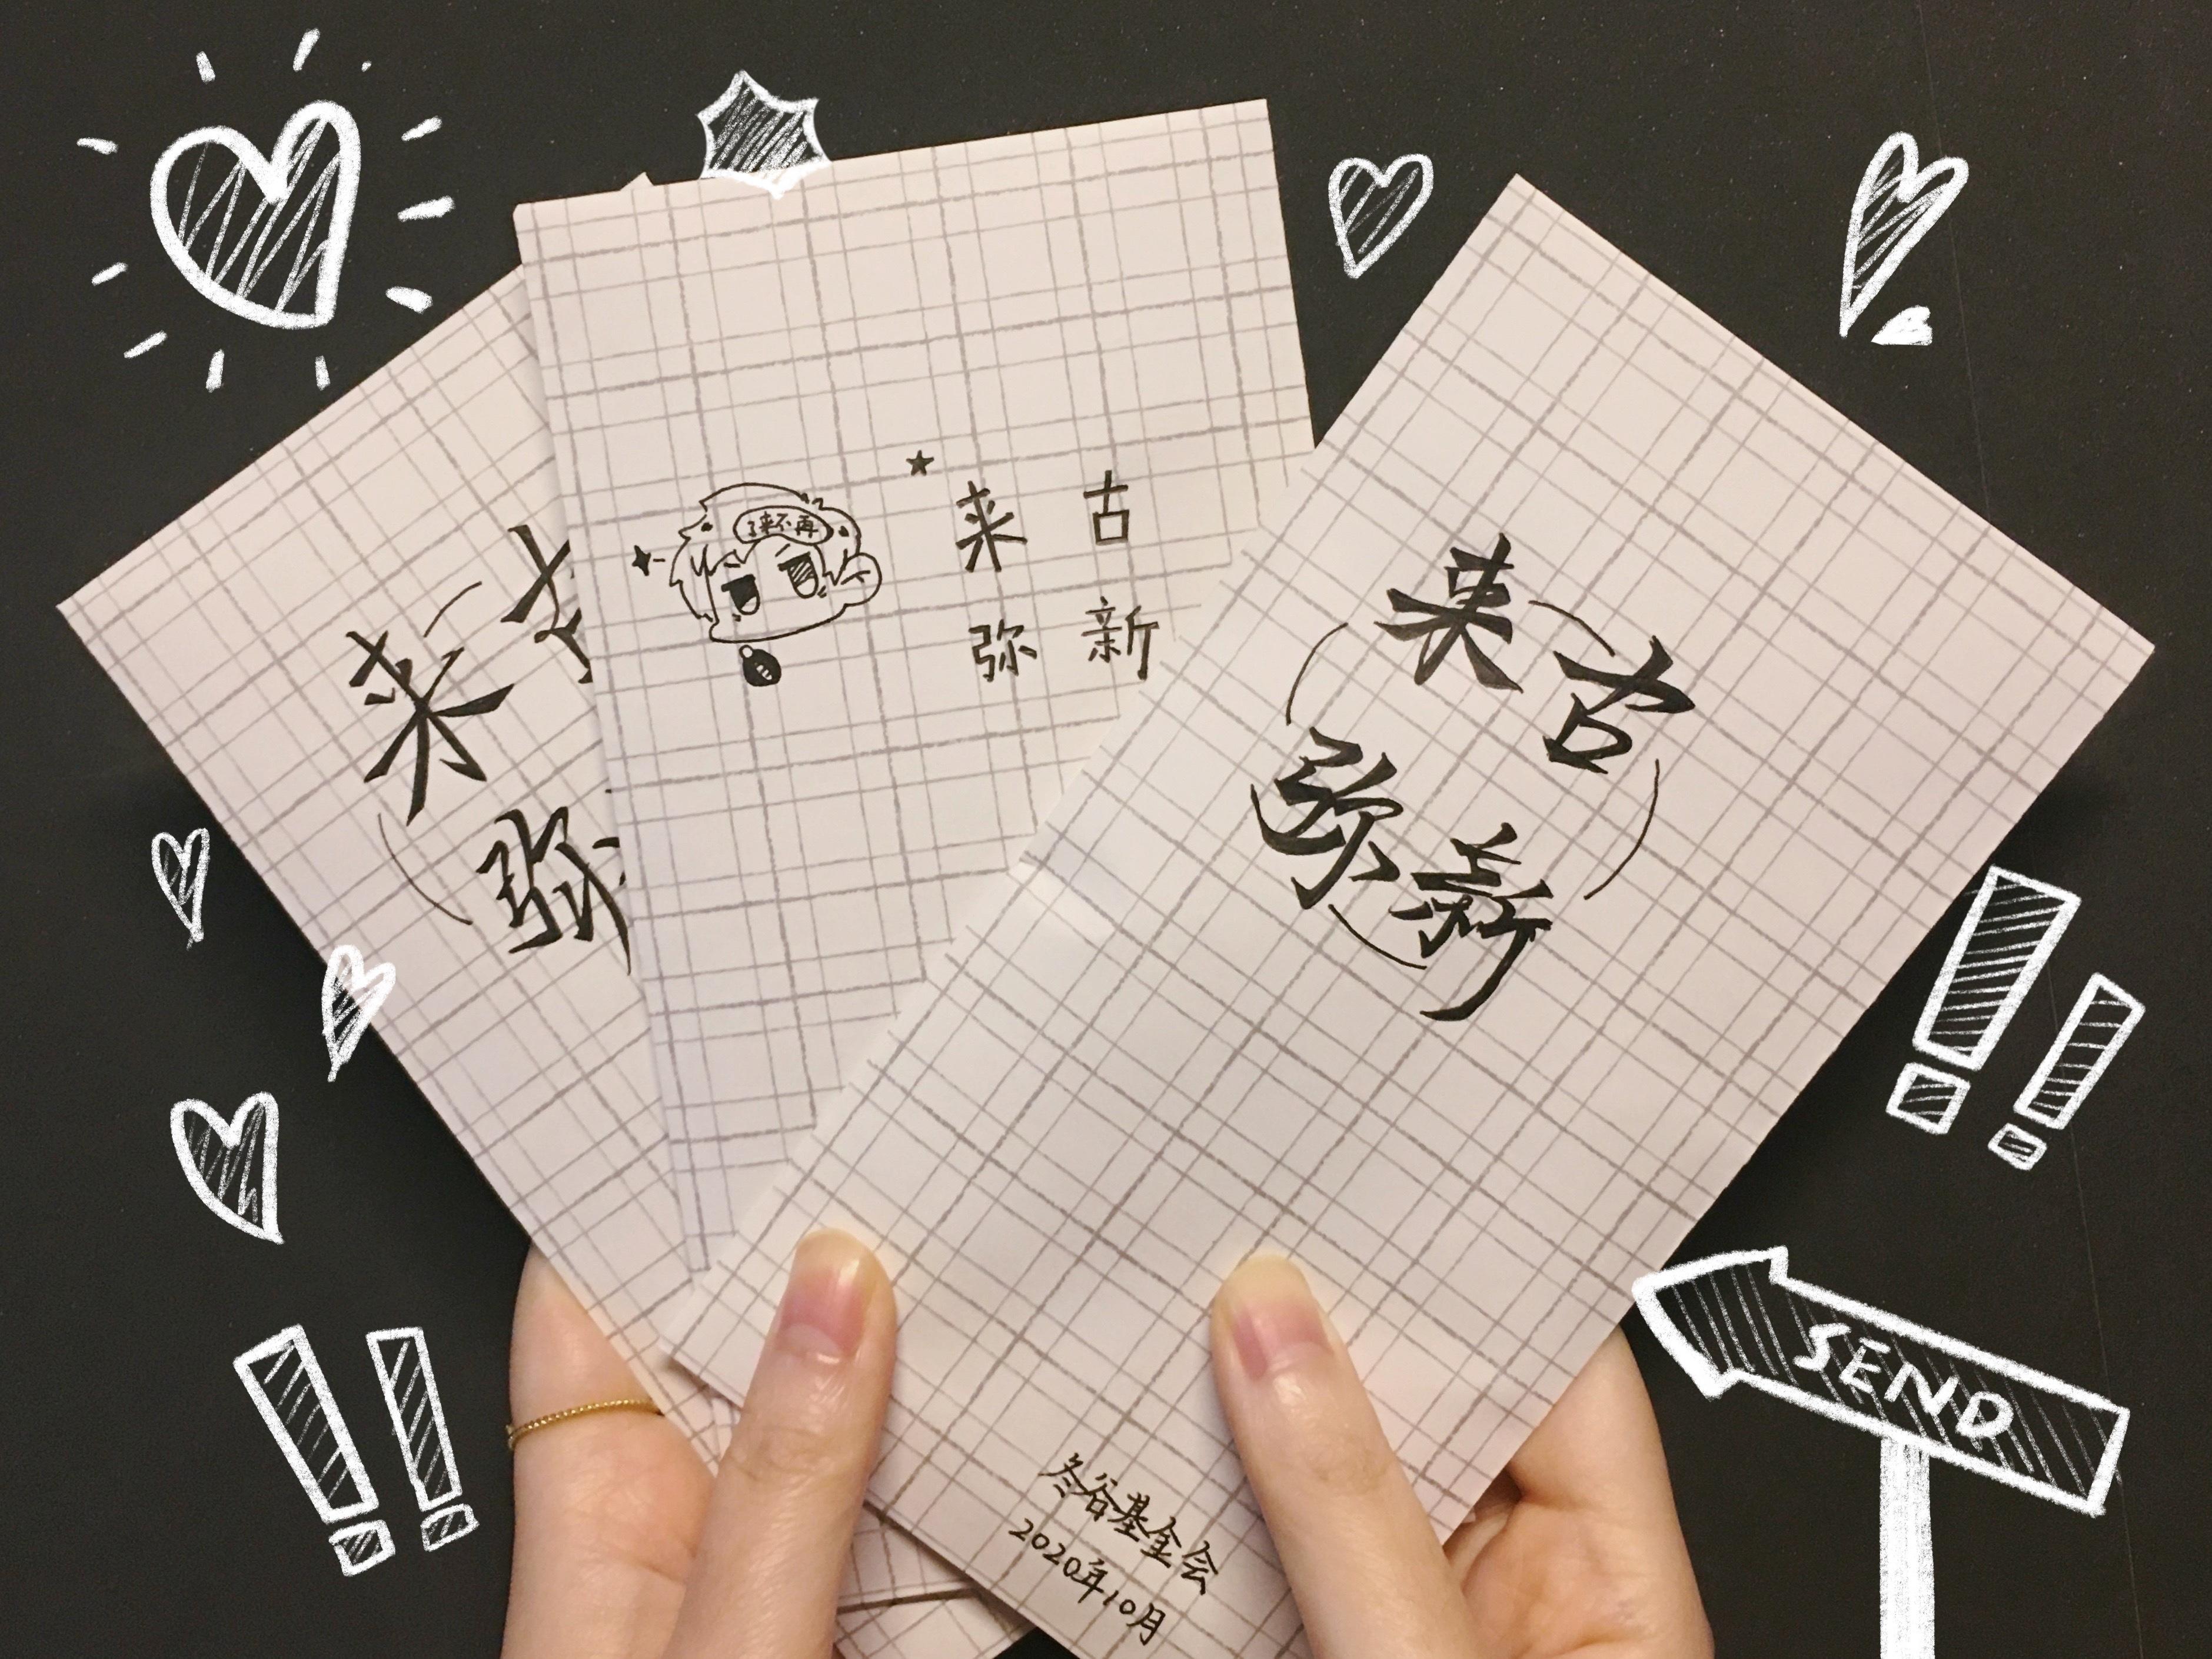 来
弥
了来不再
来古
弥新
来古
弥新
冬谷基金会
2020年10月
SEND